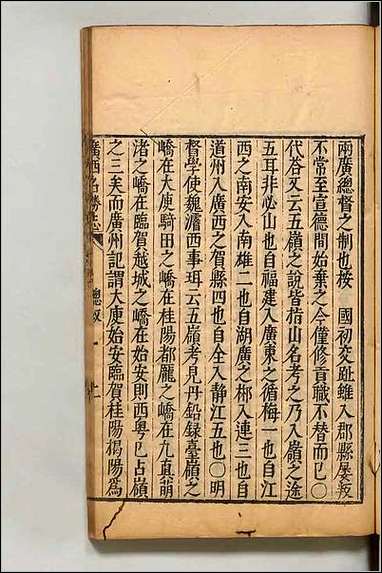 兩廣總督之制也按　國初交趾雖入郡縣屡叛
不常至宣德間始棄之今僅修貢職不替而已〇
代荅又云五嶺之說皆指山名考之乃入嶺之途
五耳非必山也自福建入廣東之循梅一也自江
西之南安入南雄二也自湖廣之郴入連三也自
道州入廣西之賀縣四也自全入静江五也〇明
督學使魏濬西事珥云五嶺考見丹鉛録臺嶺之
嶠在大庾騎田之嶠在桂陽都龎之嶠在九真萌
渚之嶠在臨賀越城之嶠在始安則西粤已占嶺
之三矣而廣州記謂大庾始安臨賀桂陽揭陽爲
廣西名勝志　總叙　二